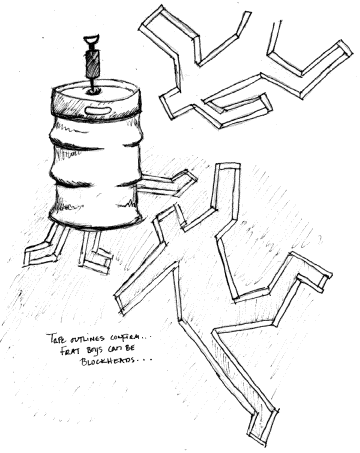 TAPE OUTLINES CONFIRM...
FRAT BOYS CAN BE
BLOCKHEADS...